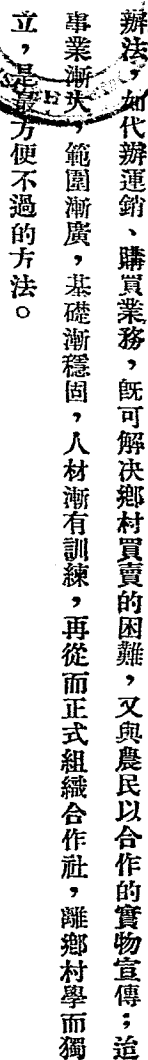 辦法，如代辦運銷、購買業務，旣可解决鄕村買賣的困難，又與農民以合作的實物宣傳；迨
事業漸大，範圍漸廣，基礎漸穩固，人材漸有訓練，再從而正式組織合作社，離鄕村學而獨
立，是最方便不過的方法。